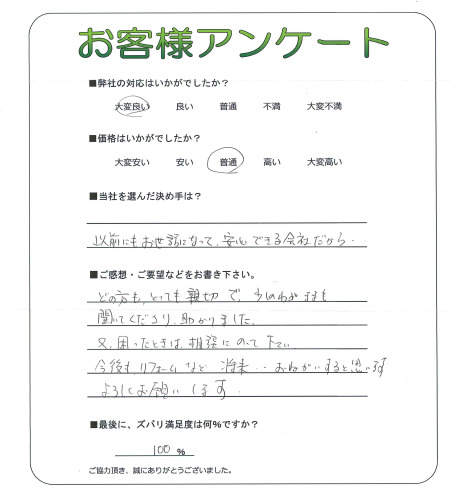 お客様アンケート
■弊社の対応はいかがでしたか?
大変良い 良い 普通 不満 大変不満
■価格はいかがでしたか?
大変安い 安い 普通 高い 大変高い
■当社を選んだ決め手は?
以前にもお世話になって、安心できる会社だから.
■ご感想・ご要望などをお書き下さい。
どの方も、とっても親切で、うちのわがままも
聞いてくださり、助かりました。
又、困ったときは、相談にのって下さい
今後も、リフォームなど 将来‥おねがいすると思います
よろしくお願いします.
■最後に、ズバリ満足度は何%ですか?
100 %
ご協力頂き、誠にありがとうございました。